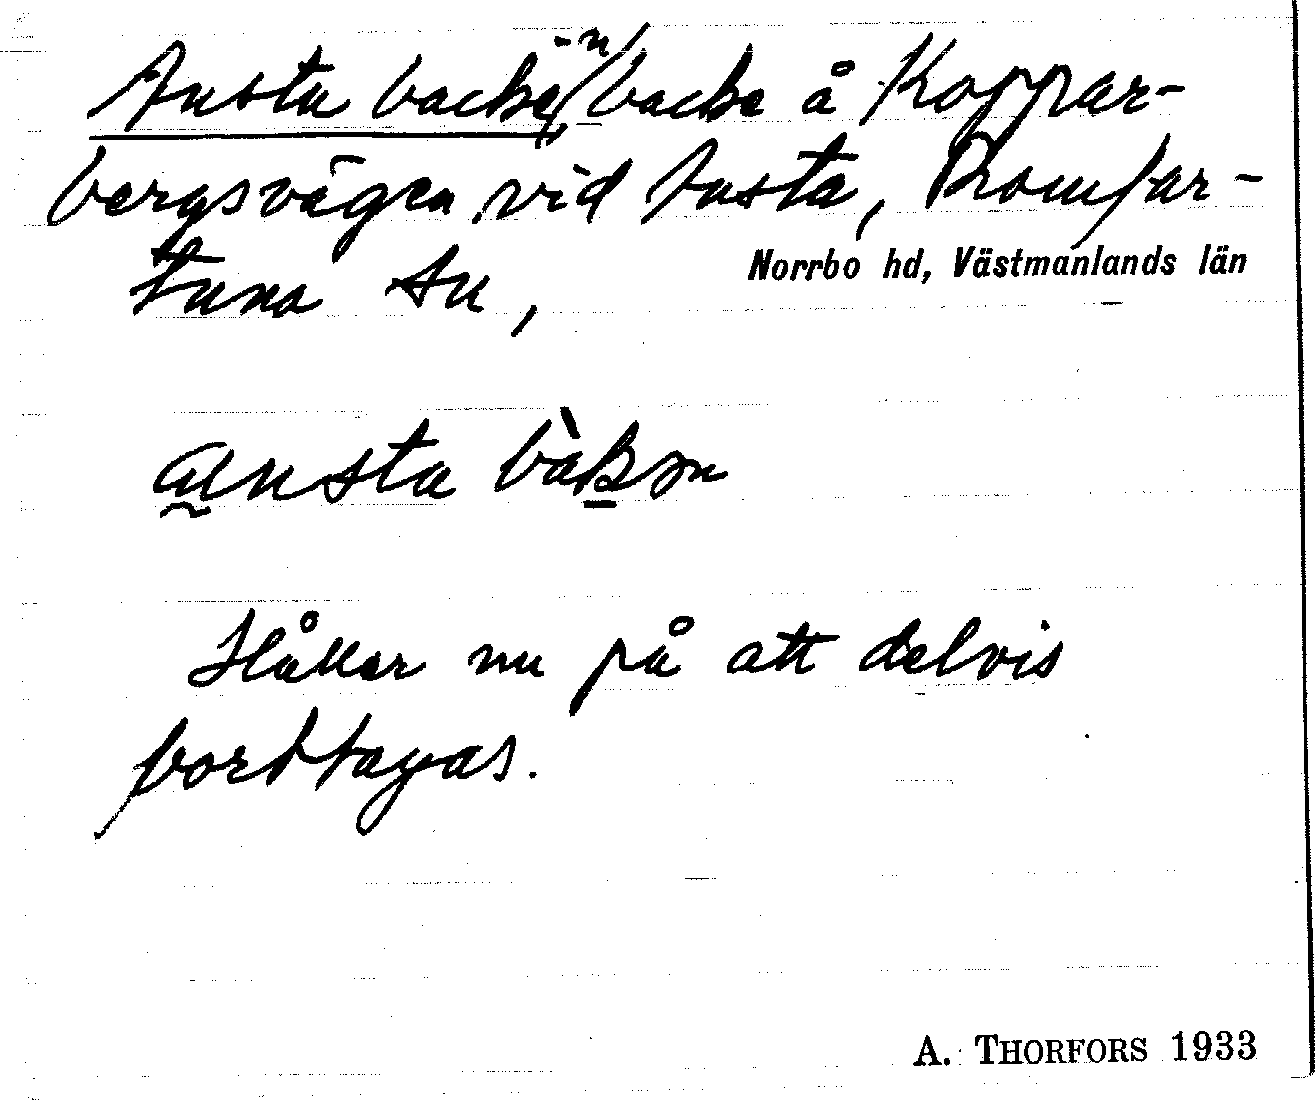 Ansta backe, -n/ backe å Koppar-
bergsvägen vid Ansta, Romfar-
tuna sn,
Norrbo hd, Västmanlands län
ansta bàkən
Håller nu på att delvis
borttagas.
A. THORFORS 1933